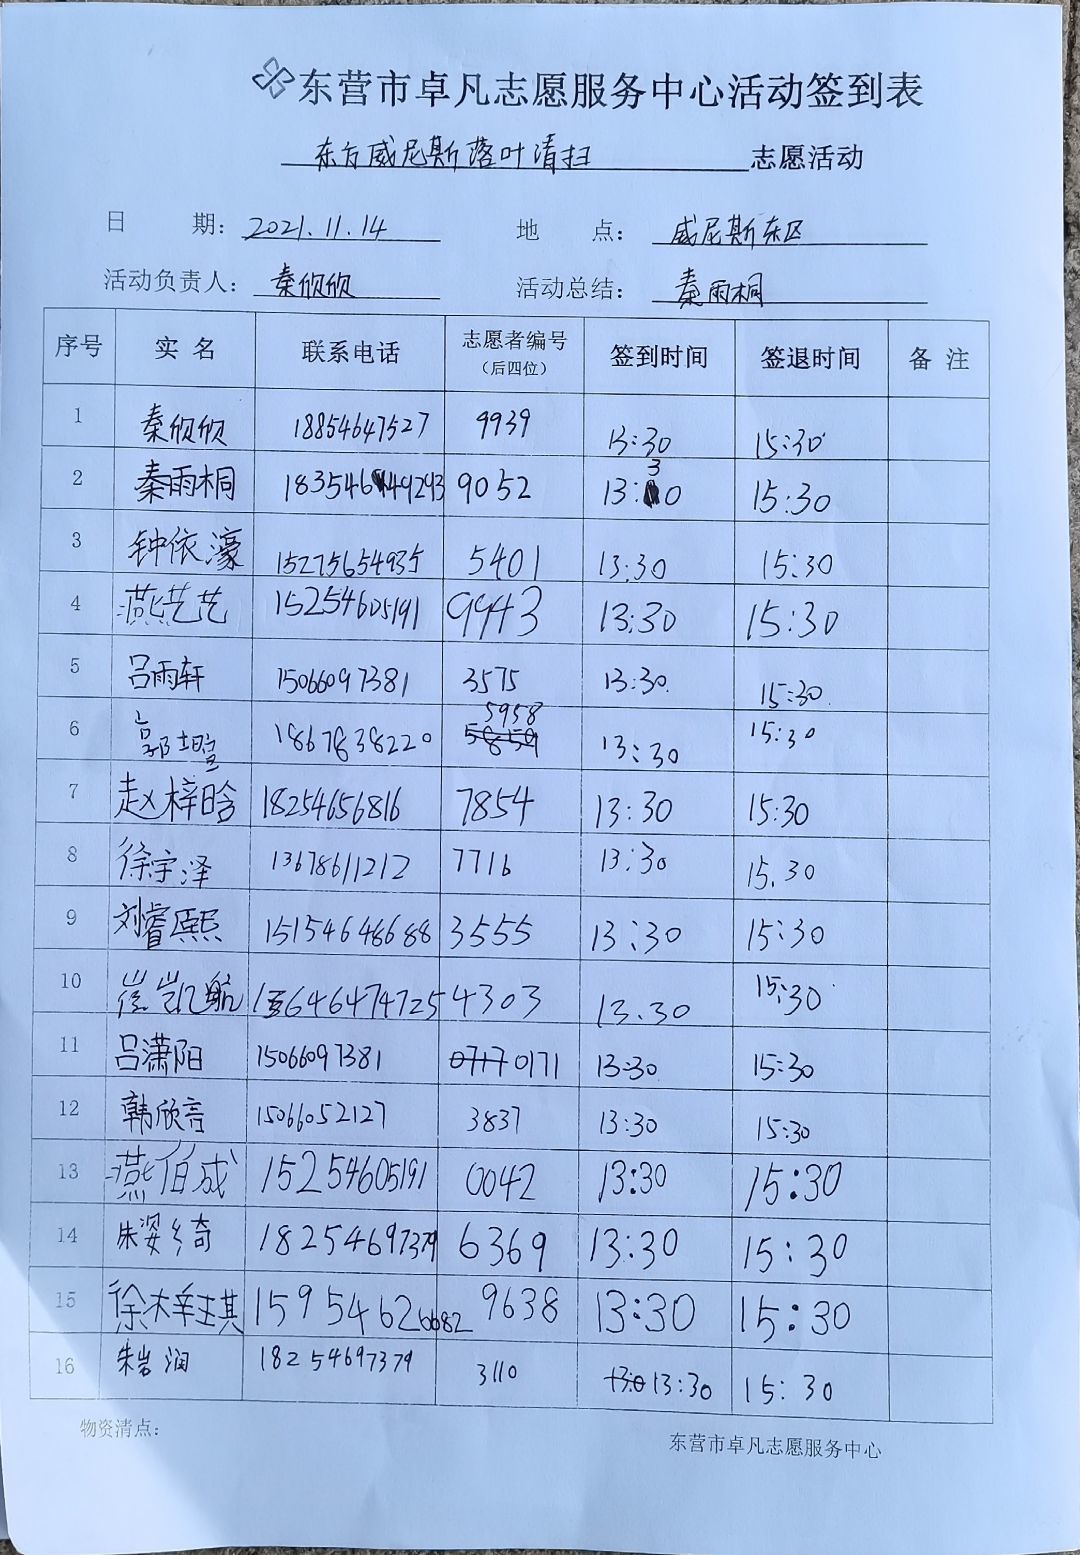 东营市卓凡志愿服务中心活动签到表
东方威尼斯落叶清扫 志愿活动
日 期: 2021.11.14 地 点: 威尼斯东区
活动负责人: 秦欣欣 活动总结: 秦雨桐
序号 实 名 联系电话 志愿者编号 (后四位) 签到时间 签退时间 备 注
1 秦欣欣 18854647527 9939 13:30 15:30
2 秦雨桐 18354649243 9052 13:30 15:30
3 钟依濠 15275654935 5401 13:30 15:30
4 燕艺艺 15254605191 9943 13:30 15:30
5 吕雨轩 15066097381 3575 13:30 15:30
6 郭 1867838220 5958 13:30 15:30
7 赵梓晗 18254656816 7854 13:30 15:30
8 徐宇泽 13678611212 7716 13:30 15.30
9 刘睿熙 15154648688 3555 13:30 15:30
10 崔凯航 15646474725 4303 13.30 15:30
11 吕潇阳 15066097381 0717 0171 13:30 15:30
12 韩欣言 15066052127 3837 13:30 15:30
13 燕伯成 15254605191 0042 13:30 15:30
14 朱姿奇 18254697379 6369 13:30 15:30
15 徐梓琪 15954626682 9638 13:30 15:30
16 朱岩润 18254697379 3110 13:30 15:30
物资清点:
东营市卓凡志愿服务中心